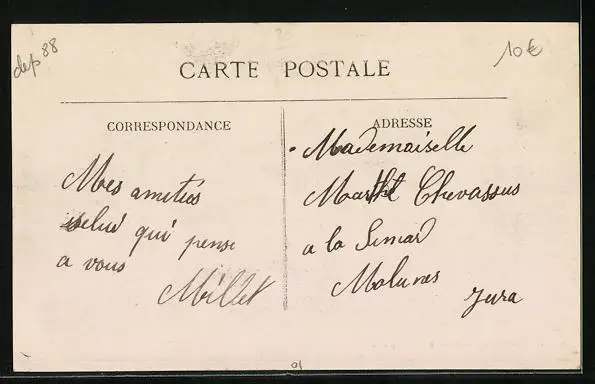 dep 88
10€
CARTE POSTALE
CORRESPONDANCE
Mes amitiés
selui qui pense
a vous
Millet
ADRESSE
Mademaiselle
Marthe Chevassus
a la Simard
Molunes
Jura